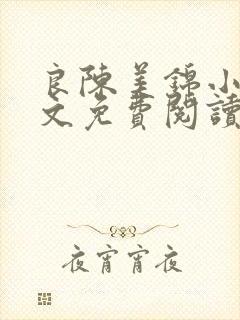 良陳美錦小
文免費閱讀
夜宵宵夜